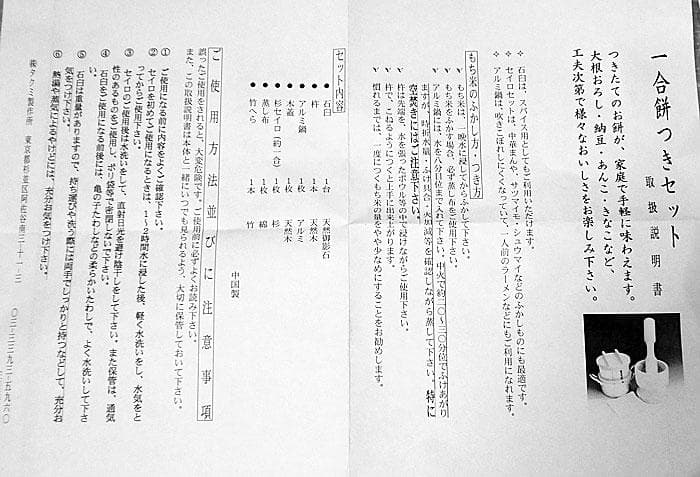 一合餅つきセット
取扱説明書
つきたてのお餅が、家庭で手軽に味わえます。
大根おろし・納豆・あんこ・きなこなど、
工夫次第で様々なおいしさをお楽しみ下さい。
石臼は、スパイス用としてもご利用いただけます。
セイロセットは、中華まんや、サツマイモ・シュウマイなどのふかしものにも最適です。
アルミ鍋は、吹きこぼれしにくくなっていて、一人前のラーメンなどにもご利用になれます。
もち米のふかし方・つき方
もち米は、一晩水に浸してからふかして下さい。
もち米をふかす場合、必ず蒸し布をご使用下さい。
アルミ鍋には、水を八分目まで入れて下さい。中火で約二〇〜三〇分位でふけあがり
ますが、時折水量・ふけ具合・火加減等を確認しながら蒸して下さい。特に
空焚きにはご注意下さい。
杵は先端を、水を張ったボウル等の中で浸けながらご使用下さい。
杵で、こねるようにつくと上手に出来上がります。
慣れるまでは、一度につくもち米の量をやや少なめにすることをお勧めします。
セット内容
● 石臼 1台 天然御影石
● 杵 1本 天然木
● アルミ鍋 1個 アルミ
● 木蓋 1枚 天然木
● 杉セイロ(約一合) 1個 杉
● 蒸し布 1枚 綿
● 竹べら 1本 竹
中国製
ご使用方法並びに注意事項
誤ったご使用をされると、大変危険です。ご使用前に必ずよくお読み下さい。
また、この取扱説明書は本体と一緒にいつでも見られるよう、大切に保管しておいて下さい。
① ご使用になる前に内容をよくご確認下さい。
② セイロを初めてご使用になるときは、1〜2時間水に浸した後、軽く水洗いをし、水気をと
ってからご使用下さい。
③ セイロのご使用後は水洗いをして、直射日光を避け陰干しをして下さい。また保管は、通気
性のあるものをご使用し、ポリ袋等で密閉しないで下さい。
④ 石臼をご使用になる前後には、亀の子たわしなどの柔らかいたわしで、よく水洗いして下さ
い。
⑤ 石臼は重量がありますので、持ち運びや洗う際には両手でしっかりと持つなどして、充分お
気をつけ下さい。
⑥ 熱湯や蒸気によるやけどには、充分お気をつけ下さい。
㈱タクミ製作所 東京都杉並区阿佐谷南三-十一-三 〇三-三二九三-五九六〇